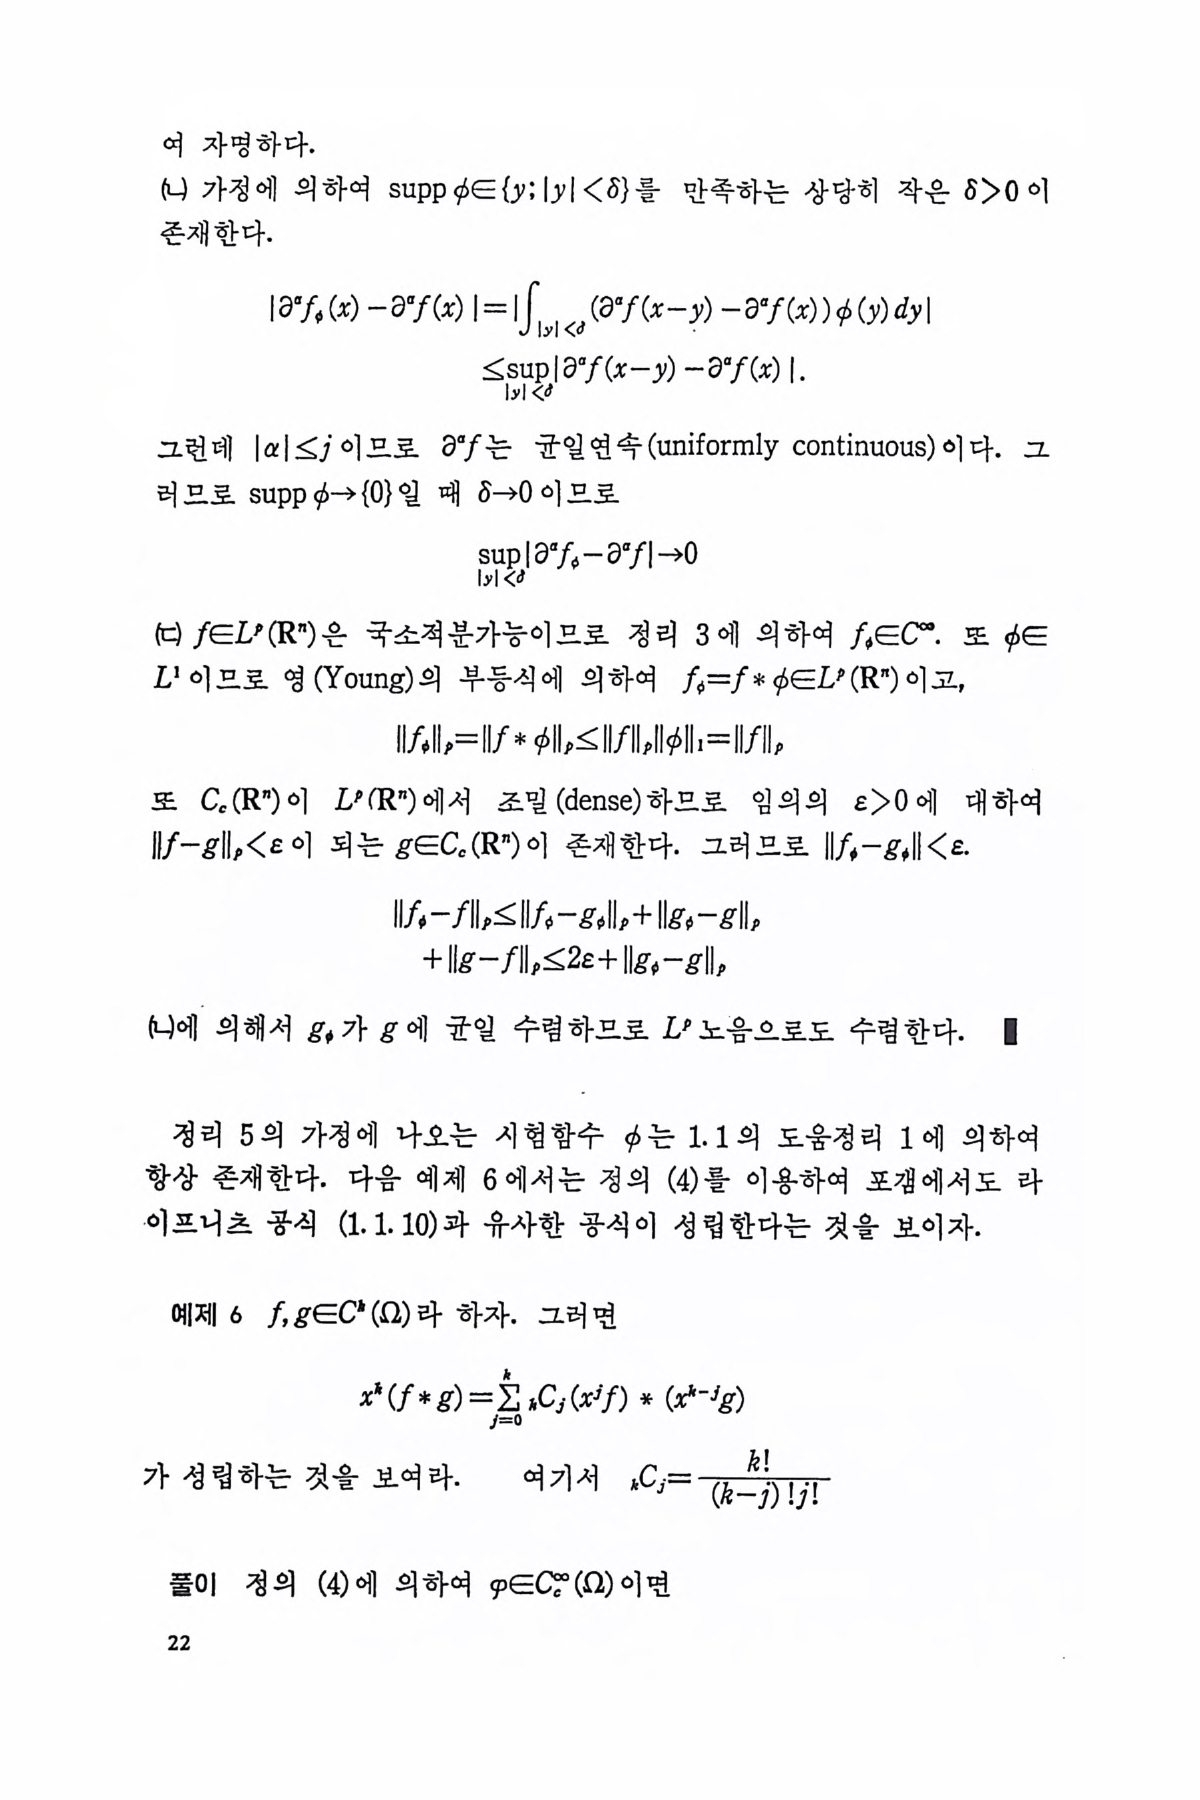 여 자명하다.
(ㄴ) 가정에 의하여 supp ϕ∈{y; |y|<δ}를 만족하는 상당히 작은 δ>0이
존재한다.
|∂ᵅf_ϕ(x)−∂ᵅf(x)|=|∫_{|y|<δ}(∂ᵅf(x−y)−∂ᵅf(x))ϕ(y)dy|
≤sup_{|y|<δ}|∂ᵅf(x−y)−∂ᵅf(x)|.
그런데 |α|≤j이므로 ∂ᵅf는 균일연속(uniformly continuous)이다. 그
러므로 supp ϕ→{0}일 때 δ→0이므로
sup_{|y|<δ}|∂ᵅf_ϕ−∂ᵅf|→0
(ㄷ) f∈Lᵖ(Rⁿ)은 국소적분가능이므로 정리 3에 의하여 f_ϕ∈C^∞. 또 ϕ∈
L¹이므로 영(Young)의 부등식에 의하여 f_ϕ=f * ϕ∈Lᵖ(Rⁿ)이고,
‖f_ϕ‖_p=‖f * ϕ‖_p≤‖f‖_p‖ϕ‖₁=‖f‖_p
또 C_c(Rⁿ)이 Lᵖ(Rⁿ)에서 조밀(dense)하므로 임의의 ε>0에 대하여
‖f−g‖_p<ε이 되는 g∈C_c(Rⁿ)이 존재한다. 그러므로 ‖f_ϕ−g_ϕ‖<ε.
‖f_ϕ−f‖_p≤‖f_ϕ−g_ϕ‖_p+‖g_ϕ−g‖_p
+‖g−f‖_p≤2ε+‖g_ϕ−g‖_p
(ㄴ)에 의해서 g_ϕ가 g에 균일 수렴하므로 Lᵖ노음으로도 수렴한다. ▮
정리 5의 가정에 나오는 시험함수 ϕ는 1.1의 도움정리 1에 의하여
항상 존재한다. 다음 예제 6에서는 정의 (4)를 이용하여 포갬에서도 라
이프니츠 공식 (1.1.10)과 유사한 공식이 성립한다는 것을 보이자.
예제 6 f, g∈Cᵏ(Ω)라 하자. 그러면
xᵏ(f * g)=∑_{j=0}^{k} ₖCⱼ(xʲf) * (xᵏ⁻ʲg)
가 성립하는 것을 보여라. 여기서 ₖCⱼ=k!/((k−j)!j!)
풀이 정의 (4)에 의하여 φ∈C_c^∞(Ω)이면
22